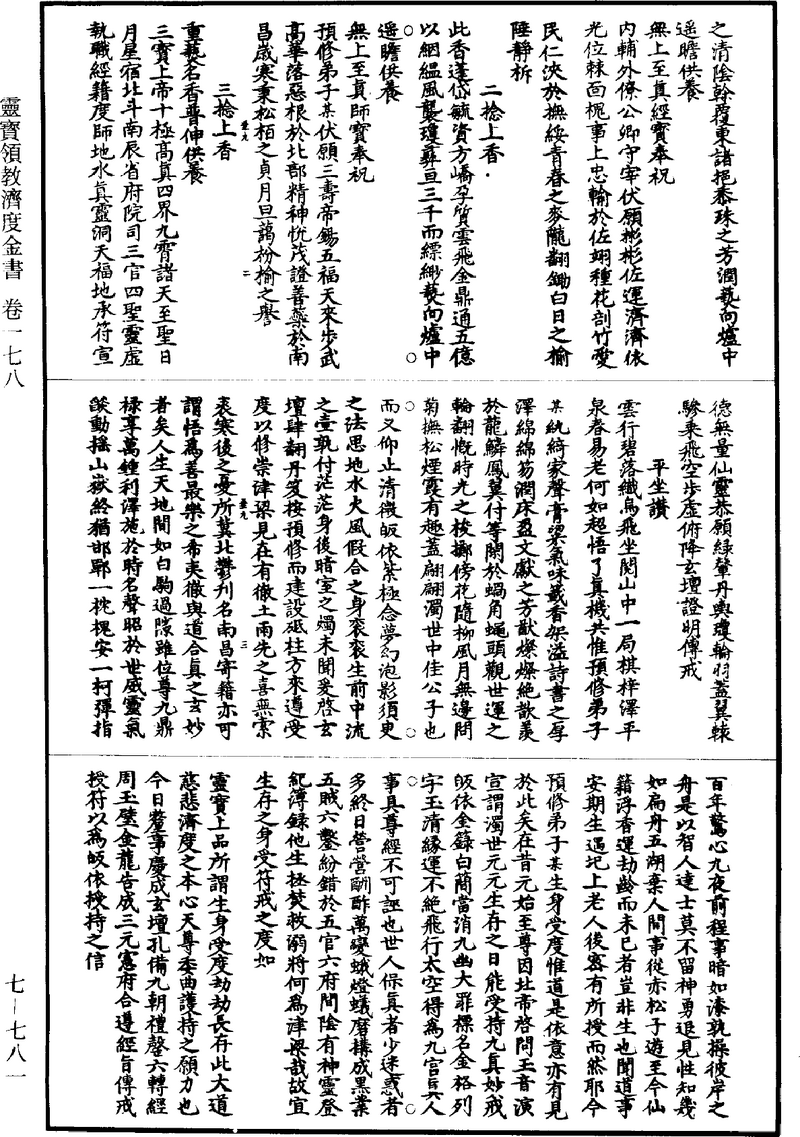 之清陰斡覆東諸挹黍珠之芳潤爇向爐中
遥瞻供養
無上至真經寶奉祝
内輔外僚公卿守宰伏願彬彬佐運濟濟依
光位棘面槐事上忠輸於佐翊種花剖竹愛
民仁浹於撫綏青春之麥隴翻鋤白日之榆
陲静柝
二捻上香
此香蓬岱毓資方嶠孕質雲飛金鼎通五億
以絪緼風襲瓊彝亘三千而縹緲爇向爐中
遥瞻供養
無上至真師寶奉祝
預修弟子某伏願三壽帝錫五福天來步武
高華落惡根於北部精神悦茂證善藥於南
昌歲寒秉松栢之貞月旦藹枌榆之譽
三捻上香
重爇名香尊伸供養
三寶上帝十極高真四界九霄諸天至聖日
月星宿北斗南辰省府院司三官四聖靈虛
執職經籍度師地水真靈洞天福地承符宣
德無量仙靈恭願緑輦丹輿瓊輪羽蓋翼轅
驂乘飛空步虛俯降玄壇證明傳戒
平坐讚
雲行碧落纖烏飛坐閲山中一局棋梓澤平
泉春易老何如超悟了真機共惟預修弟子
某紈綺家聲膏粱氣味籤香架溢詩書之厚
澤綿綿笏潤床盈文獻之芳猷燦燦絶歆羡
於龍鱗鳳翼付等閑於蝸角蠅頭觀世運之
輪翻慨時光之梭擲傍花隨柳風月無邊問
菊撫松煙霞有趣蓋翩翩濁世中佳公子也
而又仰止清微皈依紫極念夢幻泡影須臾
之法思地水火風假合之身衮衮生前中流
之壺孰付茫茫身後暗室之燭未聞爰啓玄
壇肆翻丹笈按預修而建設砥柱方來遵受
度以修崇津梁見在有徹土雨先之喜無索
裘寒後之憂所冀北酆刋名南昌寄籍亦可
謂悟爲善最樂之希夷徹與道合真之玄妙
者矣人生天地間如白駒過隙雖位尊九鼎
禄享萬鍾利澤施於時名聲昭於世威靈氣
燄動摇山嶽終猶邯鄲一枕槐安一柯彈指
百年驚心九夜前程事暗如漆孰操彼岸之
舟是以智人達士莫不留神勇退見性知幾
如扁舟五湖棄人間事從赤松子遊至今仙
籍浮香運劫齡而未已者豈非生也聞道事
安期生遇圯上老人後密有所授而然耶今
預修弟子某生身受度惟道是依意亦有見
於此矣在昔元始至尊因北帝啓問玉音演
宣謂濁世元元生存之日能受持九真妙戒
皈依金籙白簡當消九幽大罪標名金格列
字玉清緣運不絶飛行太空得爲九宫真人
事具尊經不可誣也世人保真者少迷惑者
多終日營營酬酢萬變蛾燈蟻磨構成黑業
五賊六鑿紛錯於五官六府間陰有神靈登
紀簿録他生拯焚救溺將何爲津梁哉故宜
生存之身受符戒之度如
靈寶上品所謂生身受度劫劫長存此大道
慈悲濟度之本心天尊委曲護持之願力也
今日釐事慶成玄壇孔備九朝禮罄六轉經
周玉璧金龍告成三元憲府合遵經旨傳戒
授符以爲皈依授持之信
靈寶領教濟度金書 卷一七八
七—七八一